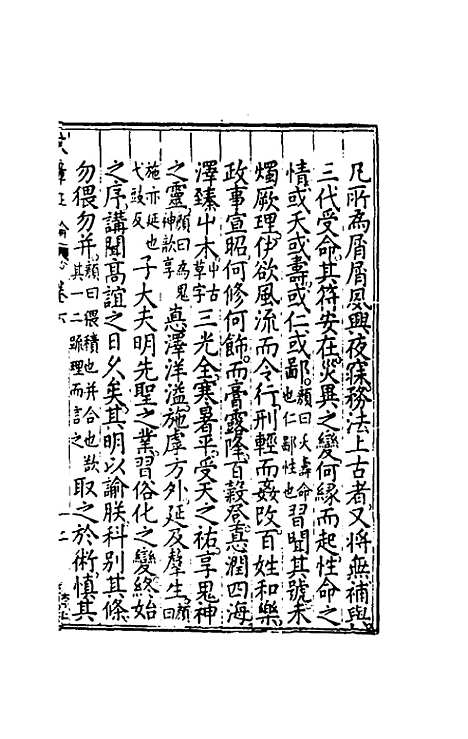 凡所為屑屑夙興夜寐務法上古者又將無補與
三代受命其符安在災異之變何緣而起性命之
情或夭或壽或仁或鄙顔曰夭壽命也仁鄙性也習聞其號未
燭厥理伊欲風流而令行刑輕而姦改百姓和樂
政事宣昭何修何飾而膏露降百穀登惪潤四海
澤臻屮木屮古草字三光全寒暑平受天之祜享鬼神
之靈顔曰為鬼神歆享惪澤洋溢施虖方外延及羣生顔曰
施亦延也弋豉反子大夫明先聖之業習俗化之變終始
之序講聞高誼之日久矣其明以諭朕科別其條
勿猥勿并顔曰猥積也并合也欲其一二疏理而言之取之於術慎其